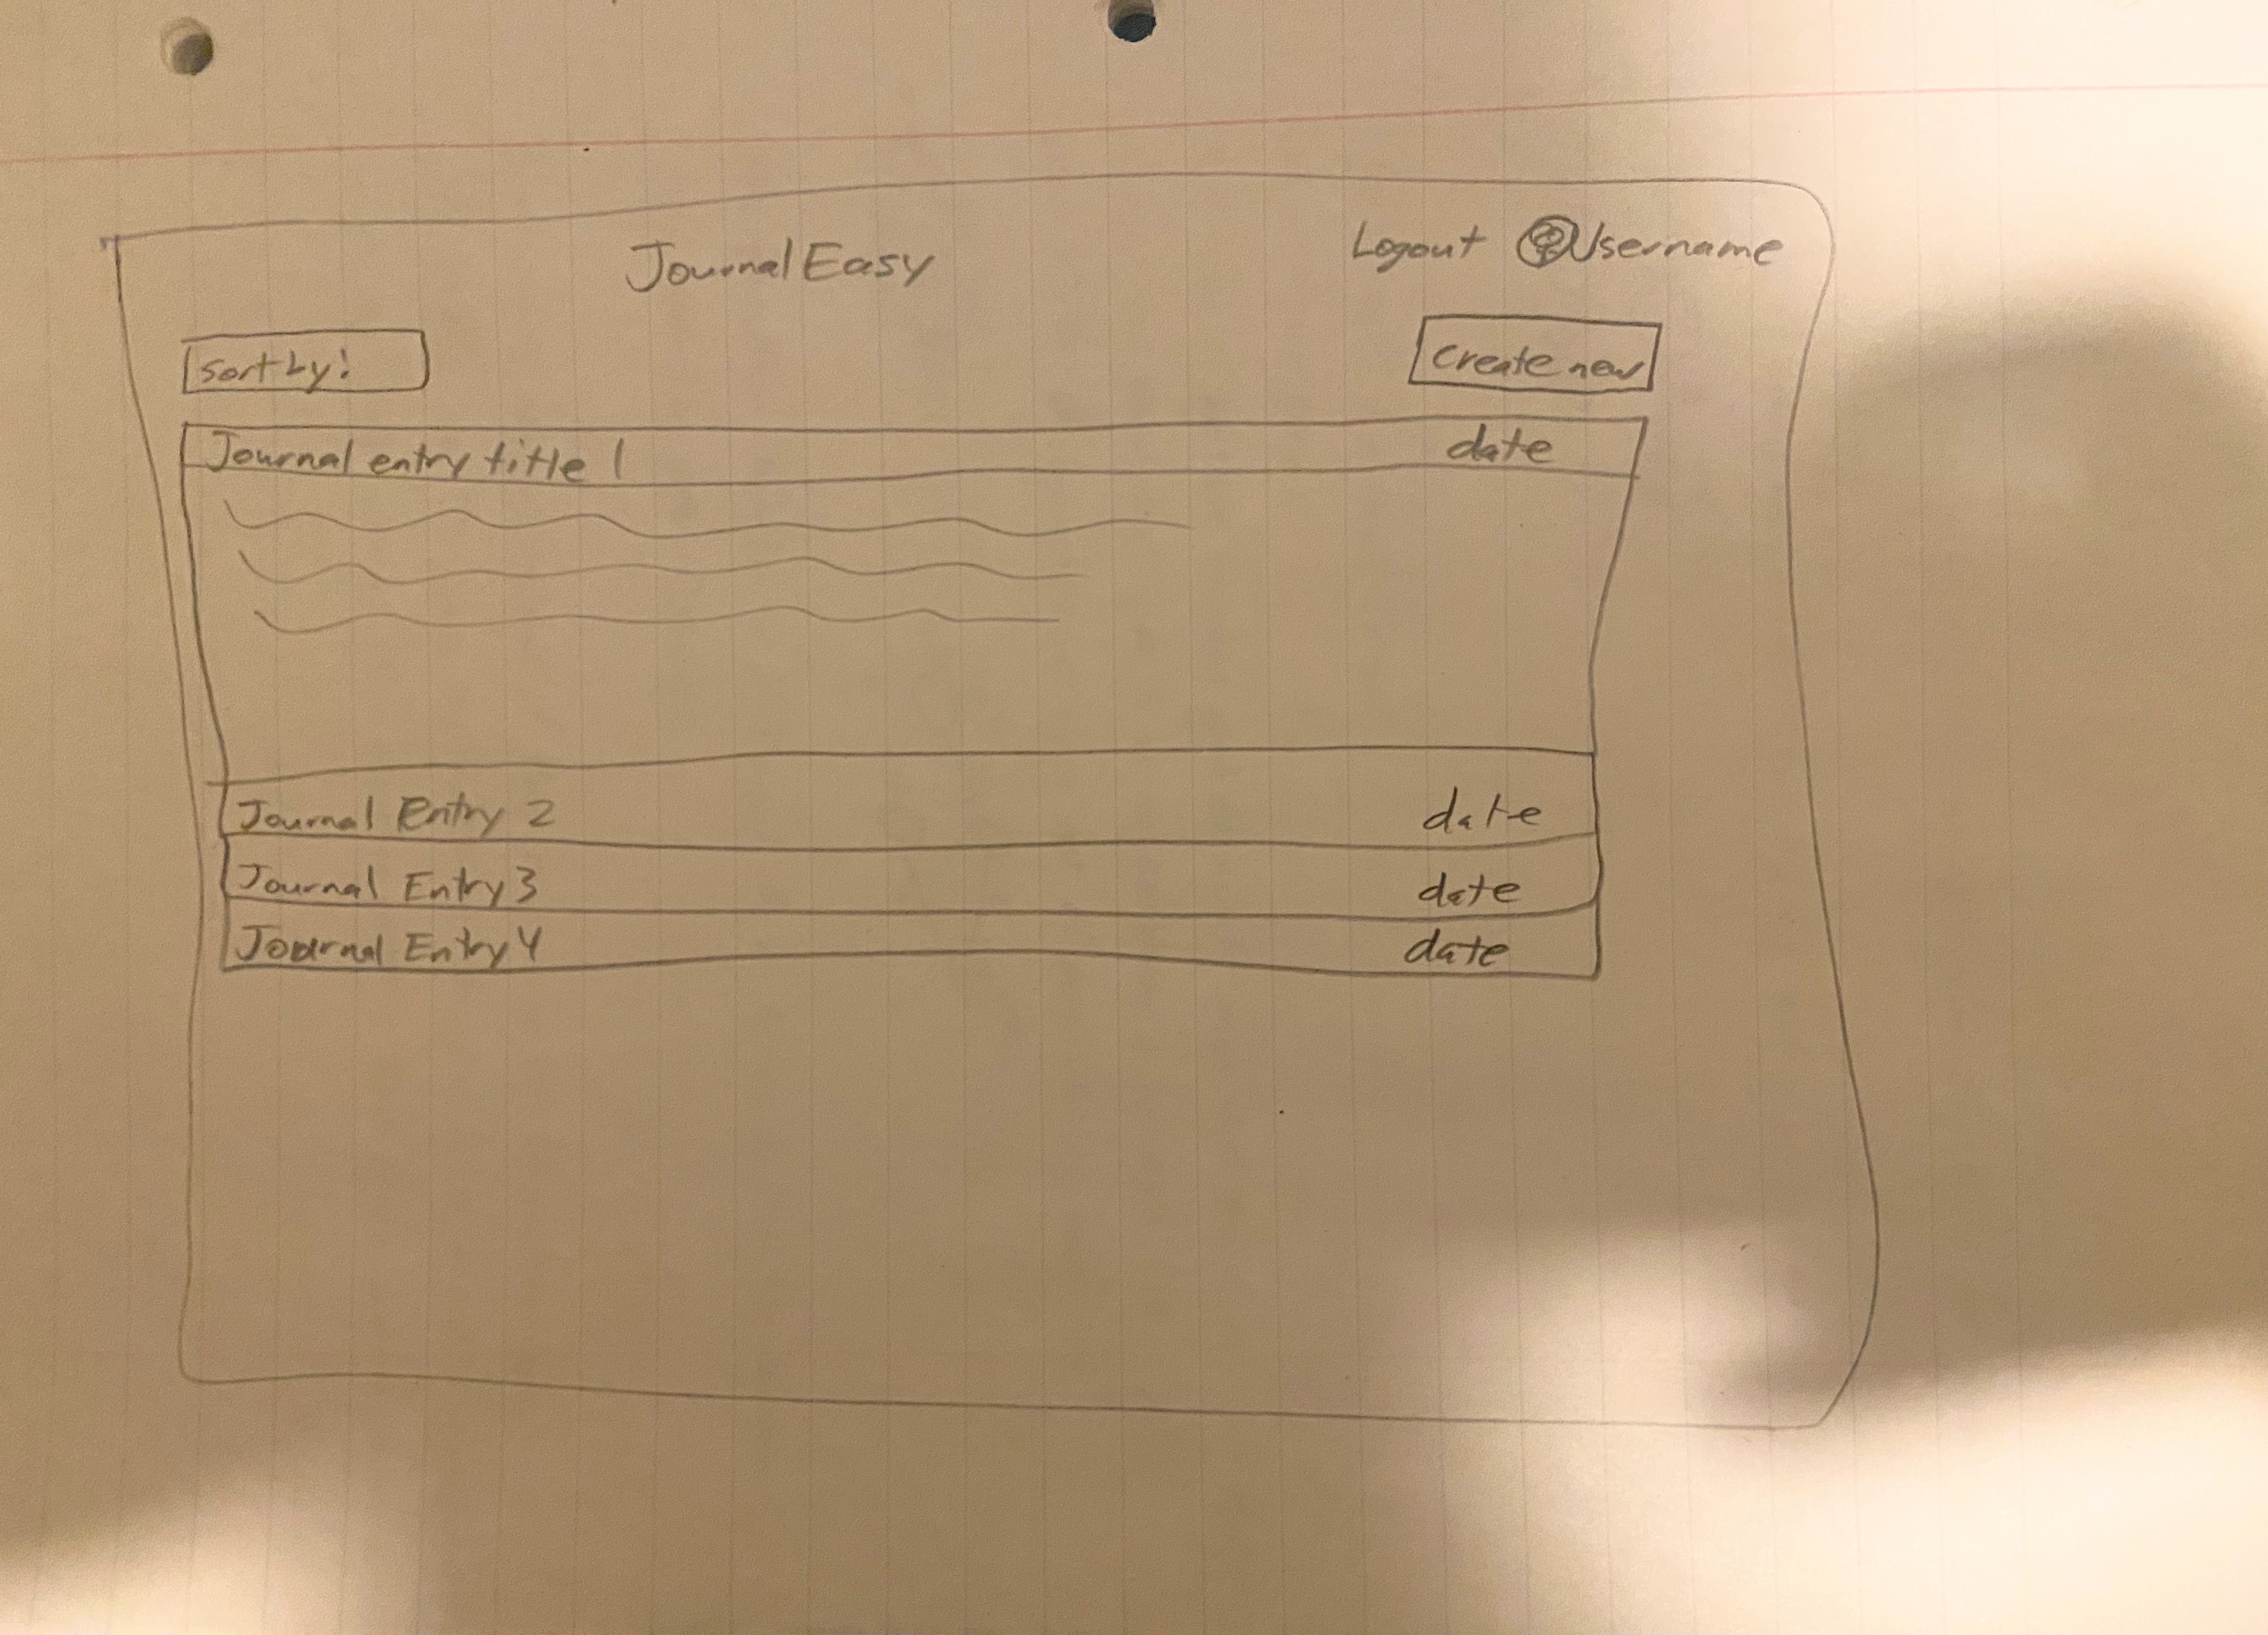 Journal Easy
Logout Username
sort by:
Create new
Journal entry title 1 date
Journal Entry 2 date
Journal Entry 3 date
Journal Entry 4 date